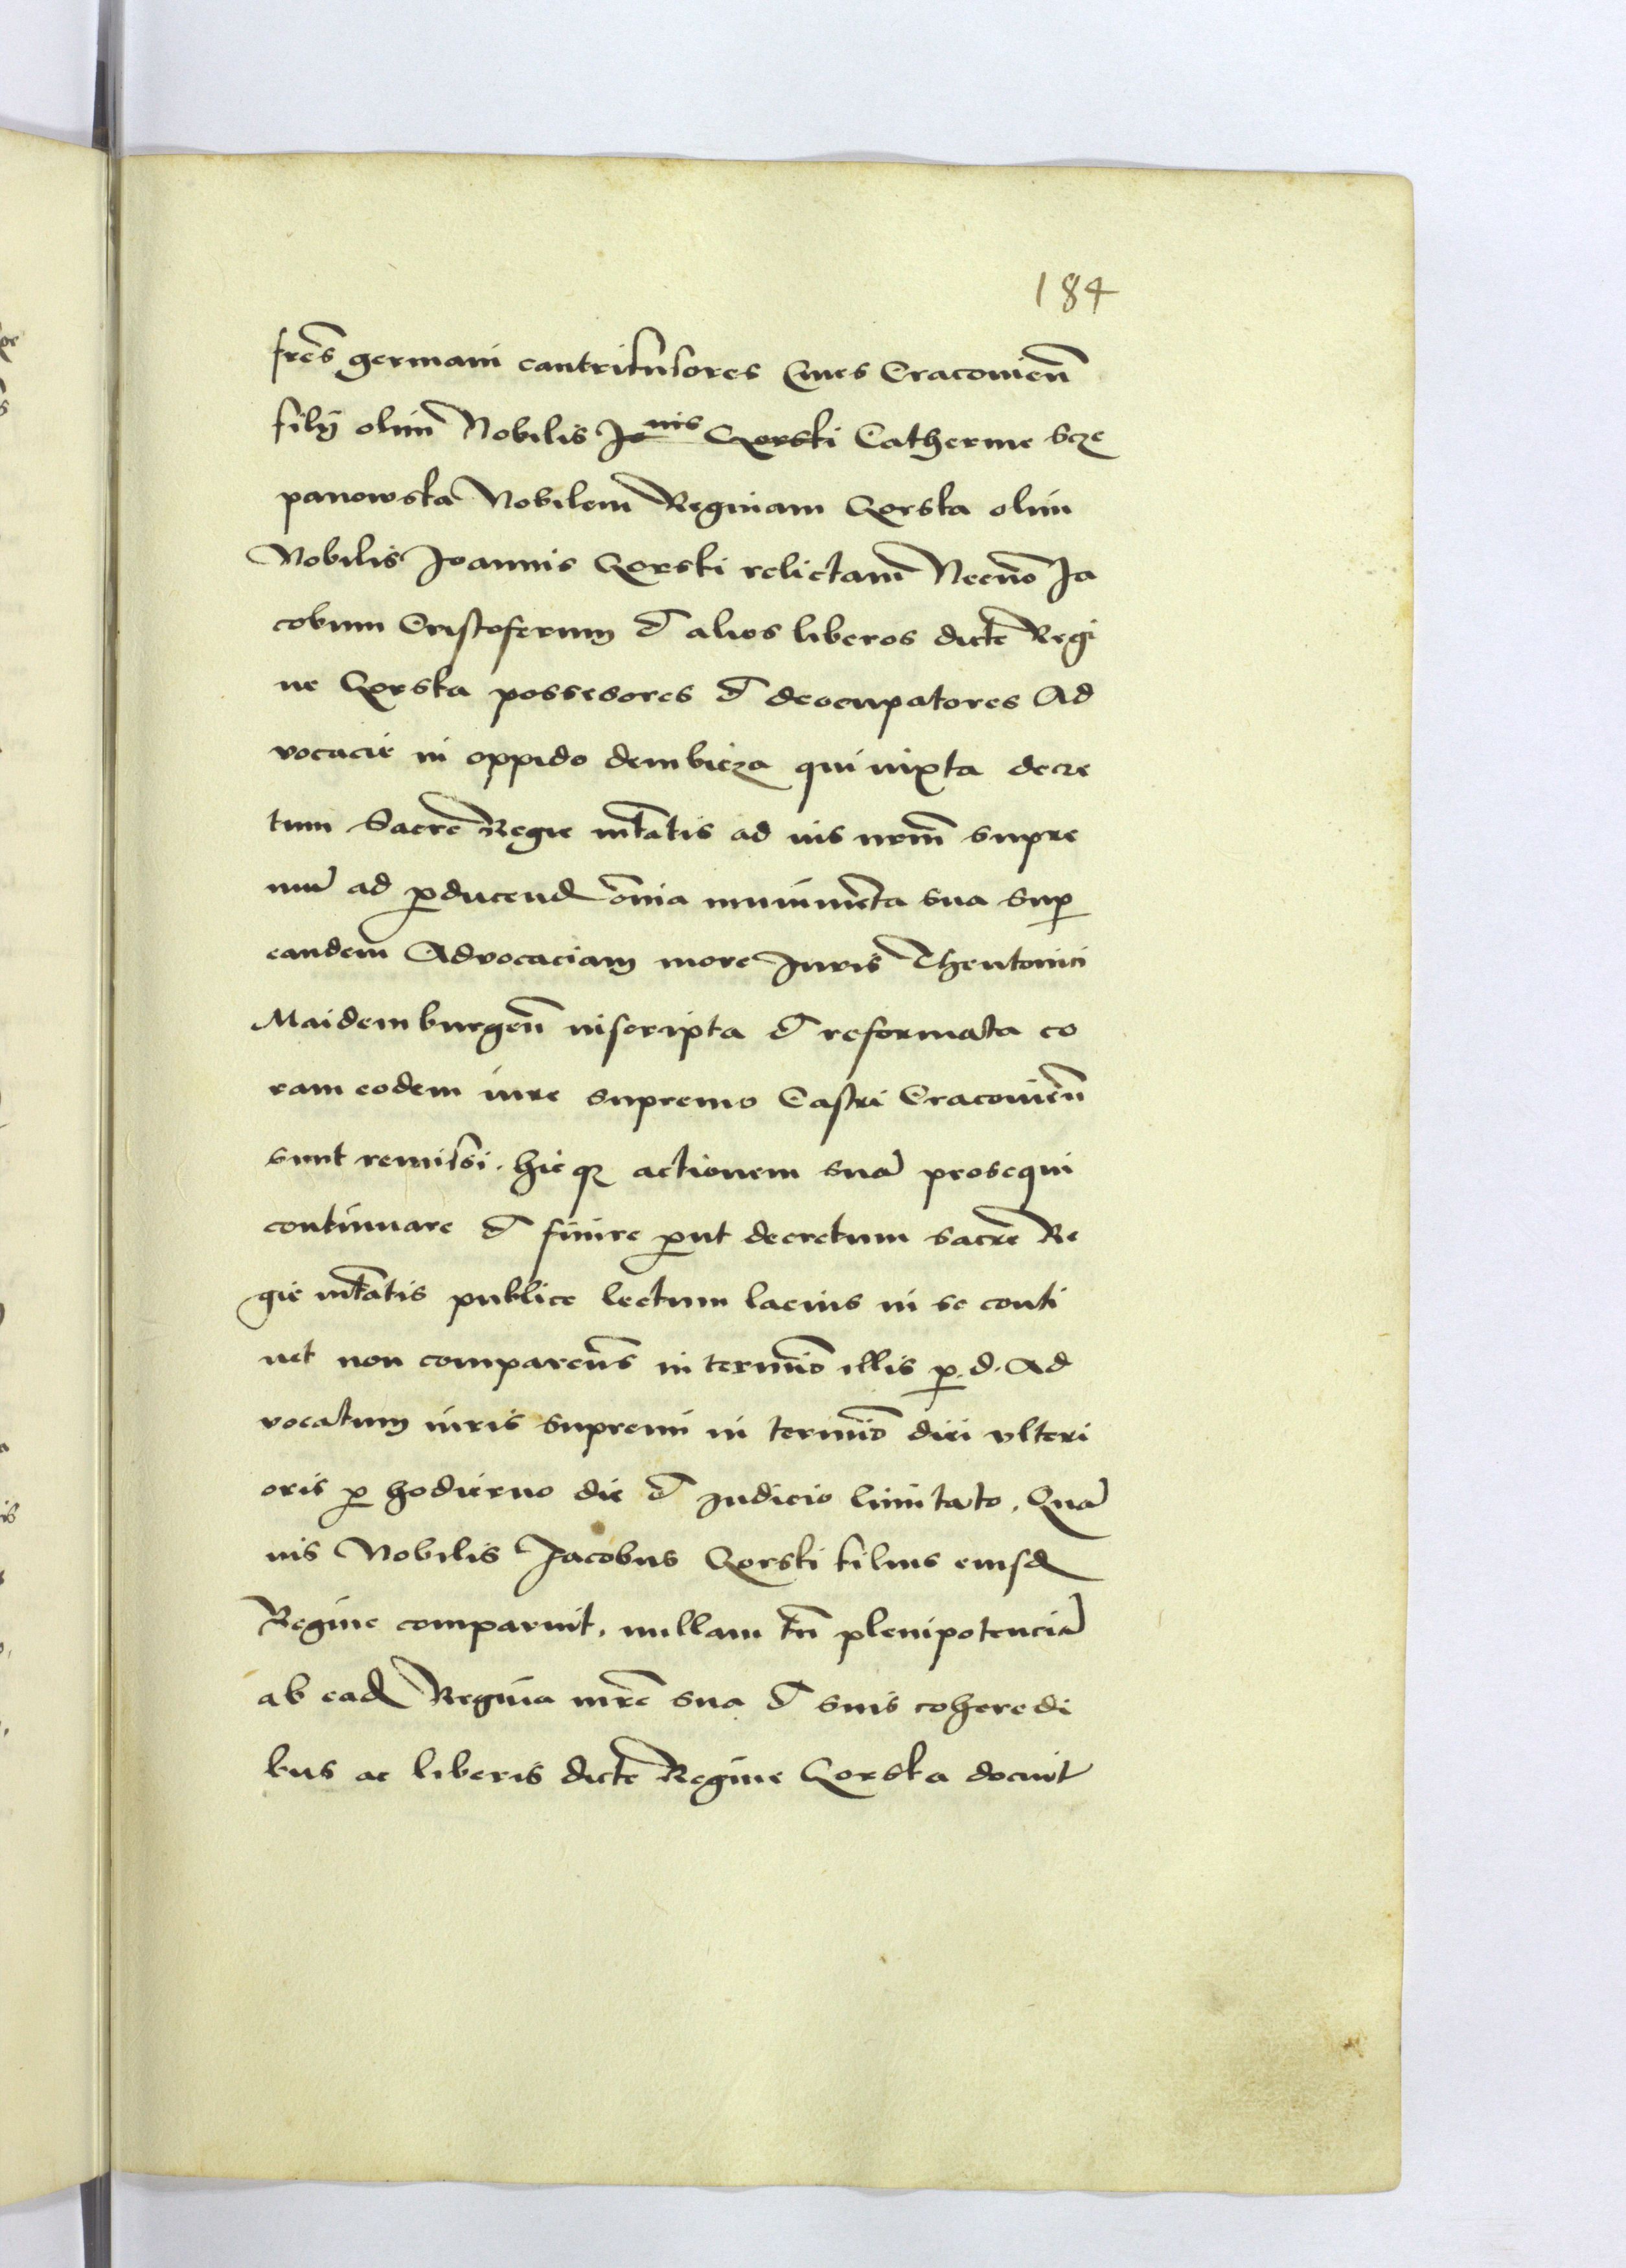 184
fres germani cantrifusores Cives Cracovien
filij olim Nobilis Jonis Gorski Catherine Scze
panowska Nobilem Reginam Gorska olim
Nobilis Joannis Gorski relictam Necno Ja
cobum Cristoferum et alios liberos dicte Regi
ne Gorska possesores et deocupatores Ad
vocacie in oppido dembicza qui iuxta decre
tum Sacre Regie mtatis ad ius nrm supre
mu ad pducend omia munimeta sua sup
eandem Advocaciam more Juris Theutonici
Maidemburgen inscripta et reformata co
ram eodem iure supremo Castri Cracovien
sunt remissi. hicqz actionem sua prosequi
continuare et finire put decretum sacre Re
gie mtatis publice lectum lacius in se conti
net non comparens in termino illis p. d. Ad
vocatum iuris supremi in termino diei ulteri
oris p hodierno die et iudicio limitato. Qua
vis Nobilis Jacobus Gorski filius eiusd
Regine comparuit. nullam tn plenipotencia
ab ead Regina mre sua et suis coheredi
bus ac liberis dicte Regine Gorska docuit